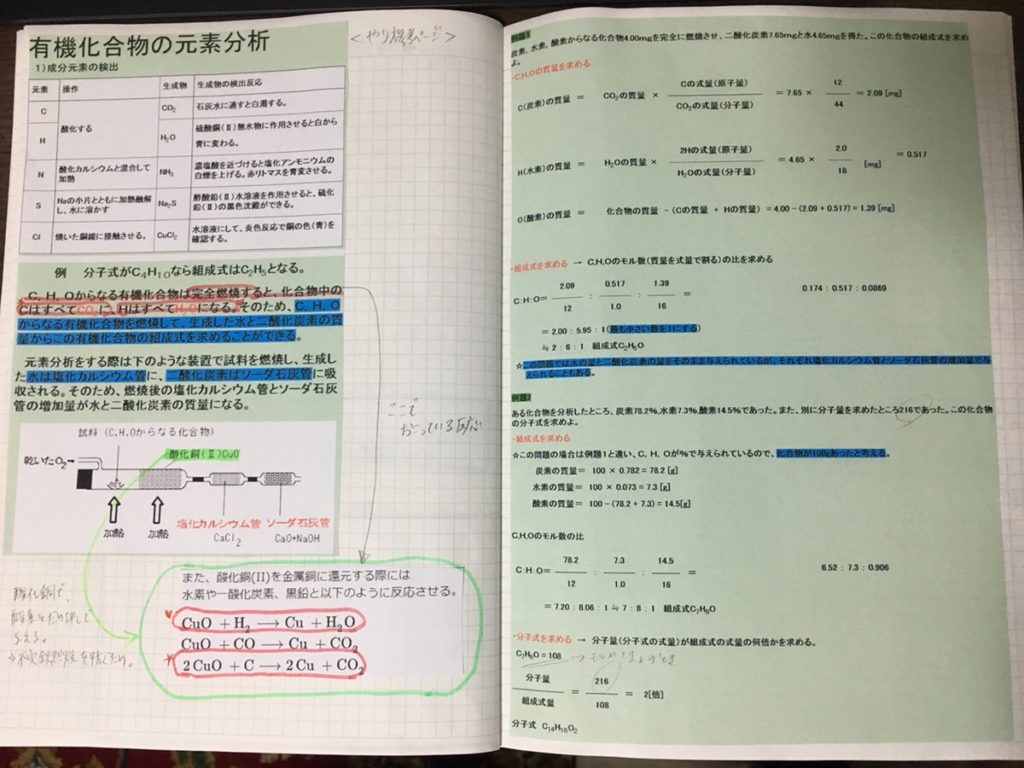 有機化合物の元素分析
1)成分元素の検出
元素 操作 生成物 生成物の検出反応
C 酸化する CO₂ 石灰水に通すと白濁する。
H H₂O 硫酸銅(Ⅱ)無水物に作用させると白から
青に変わる。
N 酸化カルシウムと混合して
加熱 NH₃ 濃塩酸を近づけると塩化アンモニウムの
白煙を上げる。赤リトマスを青変させる。
S Naの小片とともに加熱融解
し、水に溶かす Na₂S 酢酸鉛(Ⅱ)水溶液を作用させると、硫化
鉛(Ⅱ)の黒色沈殿ができる。
Cl 焼いた銅線に接触させる。 CuCl₂ 水溶液にして、炎色反応で銅の色(青)を
確認する。
例 分子式がC₄H₁₀なら組成式はC₂H₅となる。
C, H, Oからなる有機化合物は完全燃焼すると、化合物中の
CはすべてCO₂に、HはすべてH₂Oになる。そのため、C, H, O
からなる有機化合物を燃焼して、生成した水と二酸化炭素の質
量からこの有機化合物の組成式を求めることができる。
元素分析をする際は下のような装置で試料を燃焼し、生成し
た水は塩化カルシウム管に、二酸化炭素はソーダ石灰管に吸
収される。そのため、燃焼後の塩化カルシウム管とソーダ石灰
管の増加量が水と二酸化炭素の質量になる。
試料(C,H,Oからなる化合物)
酸化銅(Ⅱ)CuO
乾いたO₂→
加熱 加熱
塩化カルシウム管 ソーダ石灰管
CaCl₂ CaO+NaOH
ここで
おこっている反応
また、酸化銅(II)を金属銅に還元する際には
水素や一酸化炭素、黒鉛と以下のように反応させる。
CuO + H₂ ⟶ Cu + H₂O
CuO + CO ⟶ Cu + CO₂
2 CuO + C ⟶ 2 Cu + CO₂
酸化銅で、
例題1
炭素, 水素, 酸素からなる化合物4.00mgを完全に燃焼させ、二酸化炭素7.65mgと水4.65mgを得た。この化合物の組成式を求め
よ。
・C,H,Oの質量を求める
C(炭素)の質量 = CO₂の質量 × Cの式量(原子量) / CO₂の式量(分子量) = 7.65 × 12 / 44 = 2.09 [mg]
H(水素)の質量 = H₂Oの質量 × 2Hの式量(原子量) / H₂Oの式量(分子量) = 4.65 × 2.0 / 18 [mg] = 0.517
O(酸素)の質量 = 化合物の質量 − (Cの質量 + Hの質量) = 4.00 − (2.09 + 0.517) = 1.39 [mg]
・組成式を求める → C,H,Oのモル数(質量を式量で割る)の比を求める
C : H : O = 2.09 / 12 : 0.517 / 1.0 : 1.39 / 16 = 0.174 : 0.517 : 0.0869
= 2.00 : 5.95 : 1 (最も小さい数を1にする)
≒ 2 : 6 : 1 組成式C₂H₆O
☆この問題では水の量と二酸化炭素の量をそのまま与えられているが、それぞれ塩化カルシウム管とソーダ石灰管の増加量で与
えられることもある。
例題2
ある化合物を分析したところ、炭素78.2%, 水素7.3%, 酸素14.5%であった。また、別に分子量を求めたところ216であった。この化合物
の分子式を求めよ。
・組成式を求める
☆この問題の場合は例題1と違い、C, H, Oが%で与えられているので、化合物が100gあったと考える。
炭素の質量 = 100 × 0.782 = 78.2 [g]
水素の質量 = 100 × 0.073 = 7.3 [g]
酸素の質量 = 100 − (78.2 + 7.3) = 14.5[g]
C,H,Oのモル数の比
C : H : O = 78.2 / 12 : 7.3 / 1.0 : 14.5 / 16 = 6.52 : 7.3 : 0.906
= 7.20 : 8.06 : 1 ≒ 7 : 8 : 1 組成式C₇H₈O
・分子式を求める → 分子量(分子式の式量)が組成式の式量の何倍かを求める。
C₇H₈O = 108
分子量 / 組成式量 = 216 / 108 = 2[倍]
分子式 C₁₄H₁₆O₂